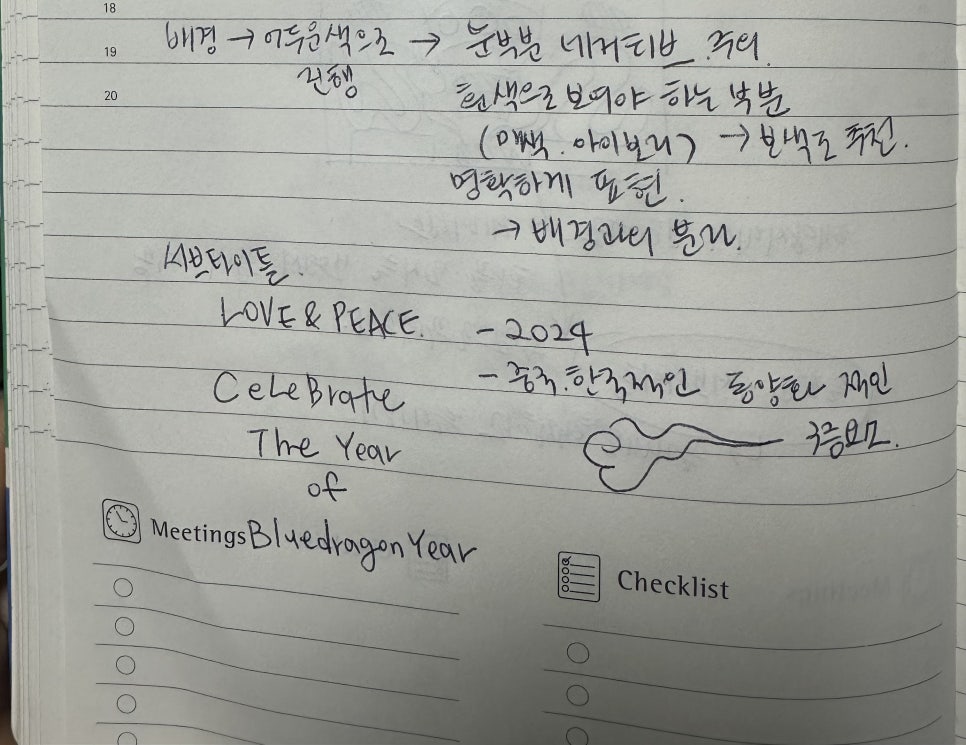 18
19 배경 → 어두운색으로 → 눈부분 네거티브 주의.
진행
20 흰색으로 보여야 하는 부분
(백색. 아이보리) → 본색도 추천.
명확하게 표현.
→ 배경과의 분리.
서브타이틀.
LOVE & PEACE. - 2024
CeleBrate - 중국.한국적인 동양화 적인
The Year 구름요소.
of
Meetings Bluedragon Year
Checklist